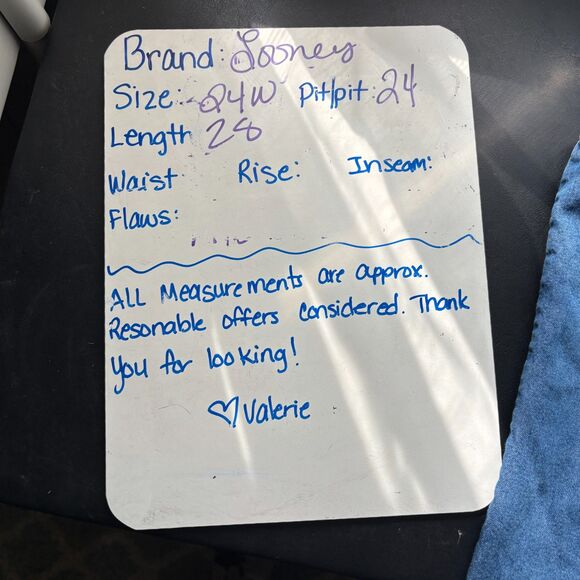 Brand: Looney
Size: 24W Pit/pit: 24
Length 28
Waist Rise: Inseam:
Flaws:
ALL Measurements are approx.
Resonable offers considered. Thank
you for looking!
♡ Valerie